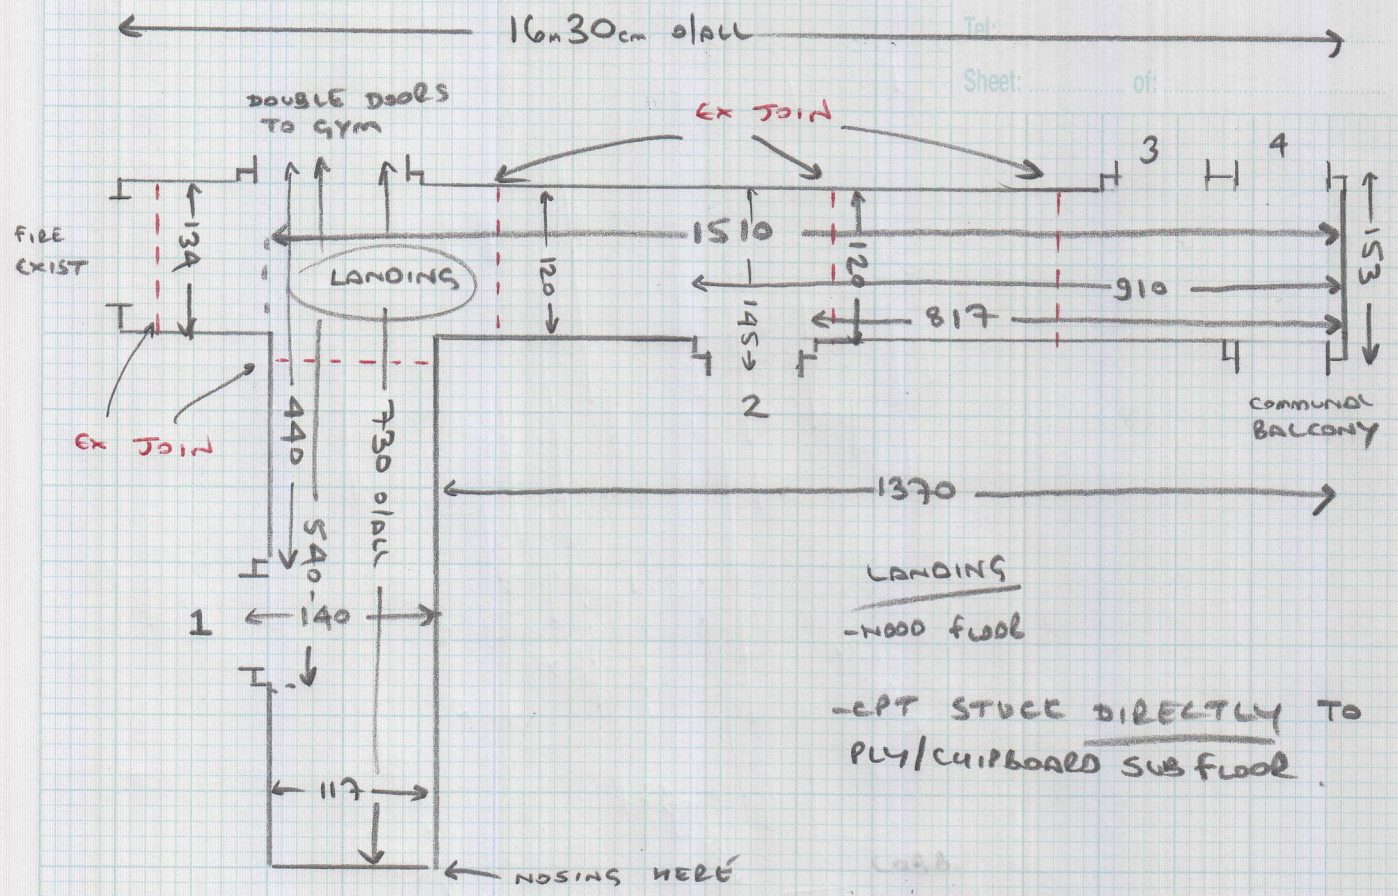 16m30cm o/ALL
Tel:
Sheet: of:
DOUBLE DOORS
TO GYM
EX JOIN
3
4
FIRE
EXIST
134
LANDING
120
1510
145
120
910
817
153
2
COMMUNAL
BALCONY
EX JOIN
440
730 o/ALL
540
1370
1
140
LANDING
-WOOD FLOOR
-CPT STUCK DIRECTLY TO
PLY/CHIPBOARD SUBFLOOR.
117
NOSING HERE